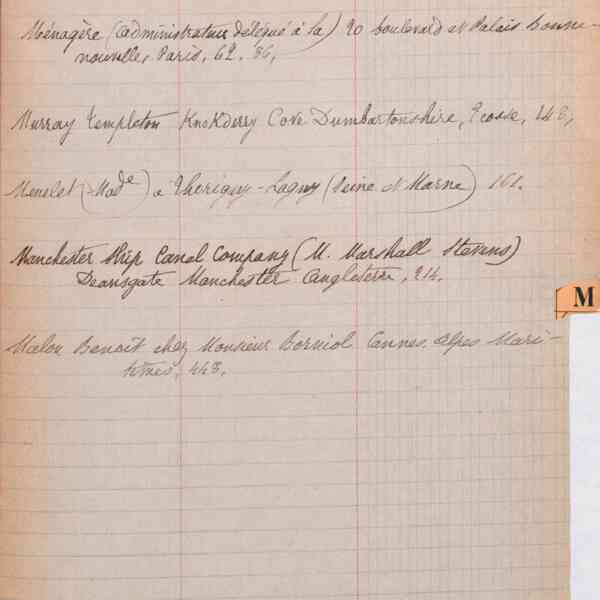 Ménagère (administrateur délégué à la) 20 boulevard et Palais Bonne-
nouvelle, Paris, 62. 86,
Murray Templeton KnoKderry Cove Dumbartonshire, Ecosse, 248,
Menelet (Made) à Thorigny-Lagny (Seine et Marne) 161.
Manchester Ship Canal Company (M. Marshall Stevens)
Deansgate Manchester Angleterre, 214.
M
Malon Benoît chez Monsieur Borniol Cannes. Alpes Mari-
times, 443,